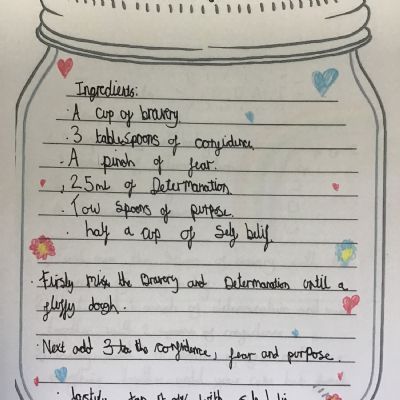 Ingredients:
· A cup of bravery.
· 3 tablespoons of confidence
· A pinch of fear.
· 25ml of Determanation
· Tow spoons of purpose.
· half a cup of self belif.
· Firstly mix the Bravery and Determanation until a
fluffy dough.
· Next add the confidence, fear and purpose.
· lastly with